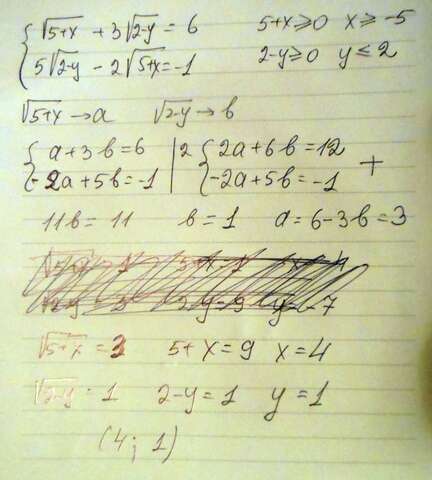 { √5+x + 3√2-y = 6 5+x≥0 x≥-5
5√2-y - 2√5+x = -1 2-y≥0 y≤2
√5+x → a √2-y → b
{ a+3b=6 | 2 { 2a+6b=12 +
-2a+5b=-1 -2a+5b=-1
11b=11 b=1 a=6-3b=3
√5+x = 3 5+x=9 x=4
√2-y = 1 2-y=1 y=1
(4; 1)